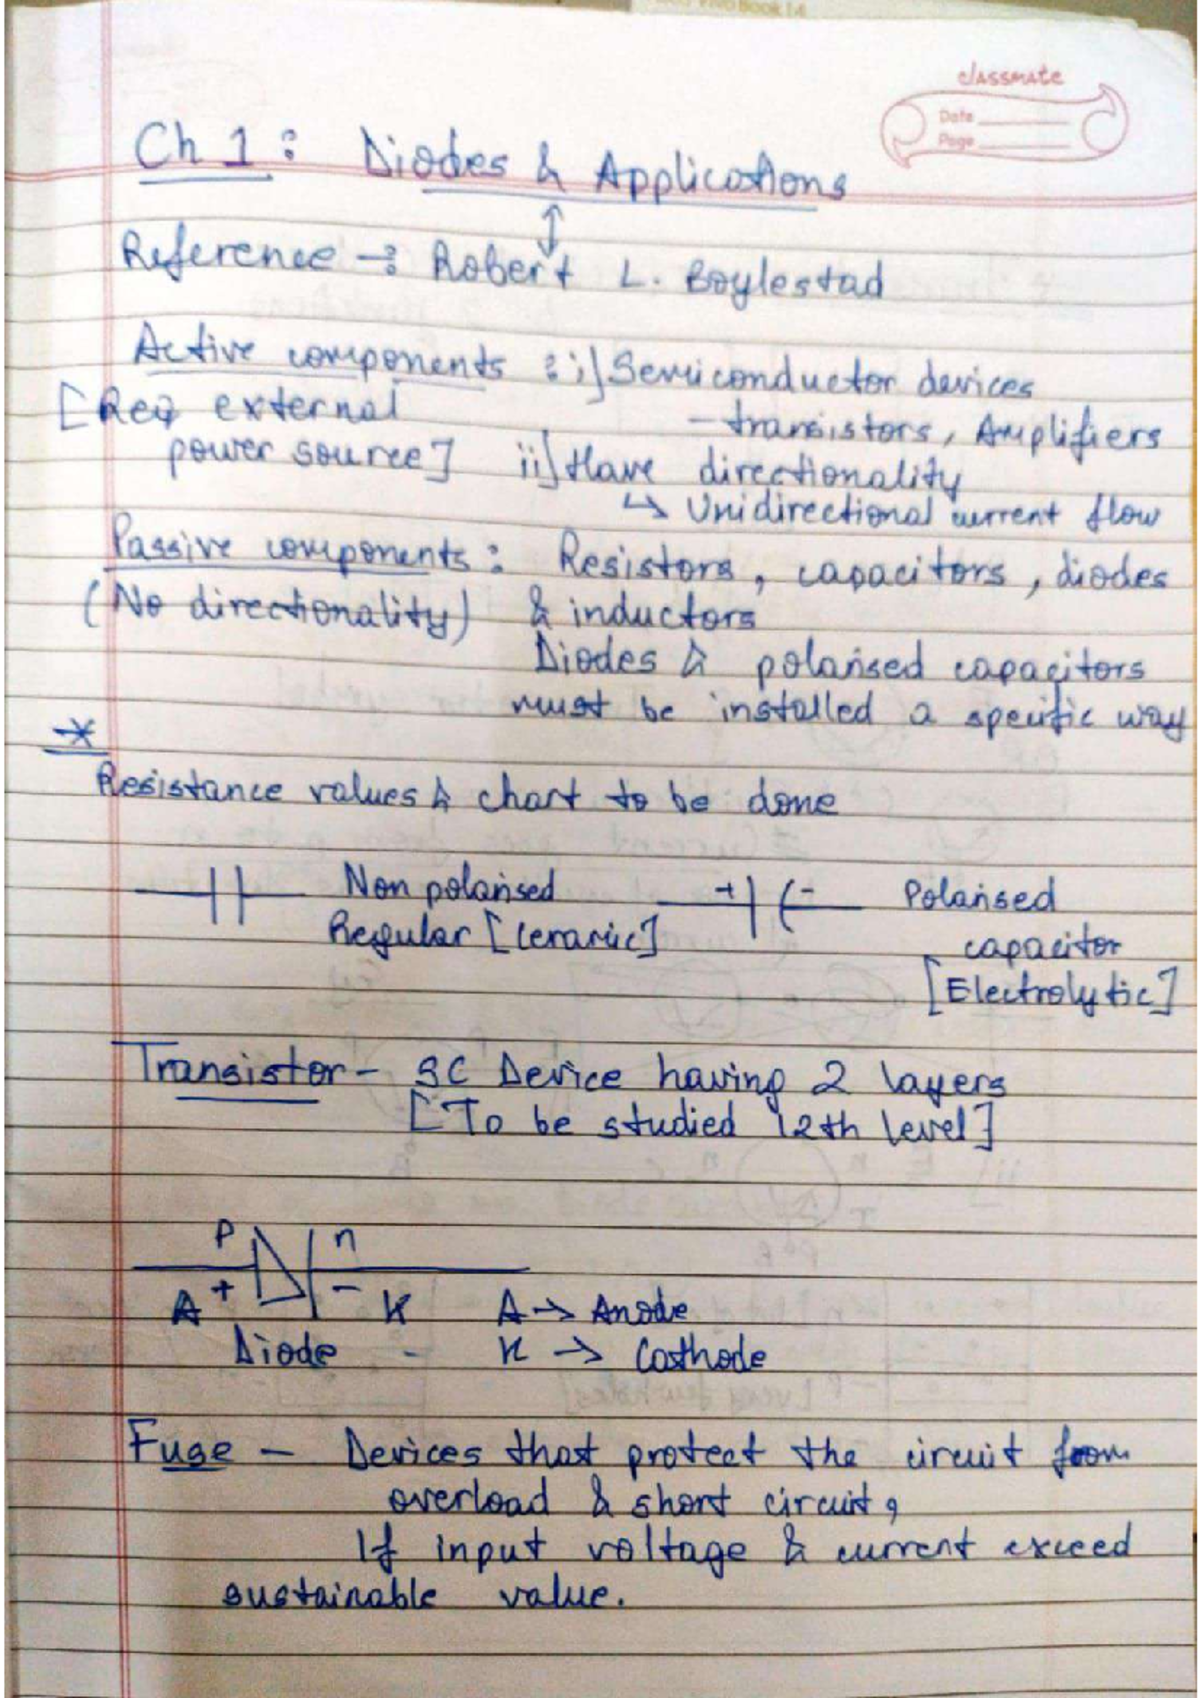 classmate
Date
Page
Ch 1 : Diodes & Applications
Reference → : Robert L. Boylestad
Active components : i] Semiconductor devices
[Req external - transistors, Amplifiers
power source] ii] Have directionality
↳ Unidirectional current flow
Passive components : Resistors, capacitors, diodes
(No directionality) & inductors
Diodes & polarised capacitors
must be installed a specific way
*
Resistance values & chart to be done
Non polarised + - Polarised
Regular [ceramic] capacitor
[Electrolytic]
Transistor - SC Device having 2 layers
[To be studied 12th level]
P n
A + - K A → Anode
Diode - K → Cathode
Fuse - Devices that protect the circuit from
overload & short circuit,
If input voltage & current exceed
sustainable value.